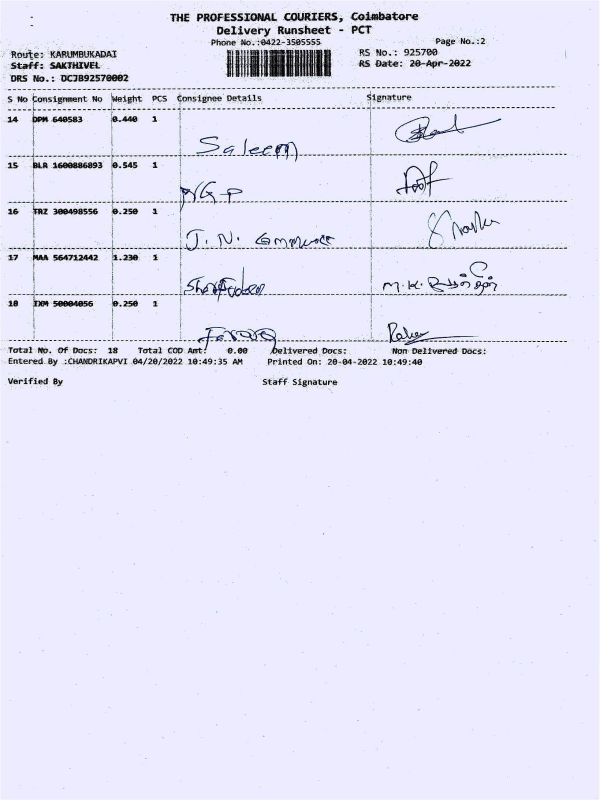 THE PROFESSIONAL COURIERS, Coimbatore
Delivery Runsheet - PCT
Phone No.:0422-3505555 Page No.:2
Route: KARUMBUKADAI RS No.: 925700
Staff: SAKTHIVEL RS Date: 20-Apr-2022
DRS No.: DCJ892570002
S No Consignment No Weight PCS Consignee Details Signature
14 DPM 640583 0.440 1
Saleem
15 BLR 1600886893 0.545 1
NGP
16 TRZ 300498556 0.250 1
J. N.
17 MAA 564712442 1.230 1
M.K.
18 IXM 50004056 0.250 1
Total No. Of Docs: 18 Total COD Amt: 0.00 Delivered Docs: Non Delivered Docs:
Entered By :CHANDRIKAPVI 04/20/2022 10:49:35 AM Printed On: 20-04-2022 10:49:40
Verified By Staff Signature